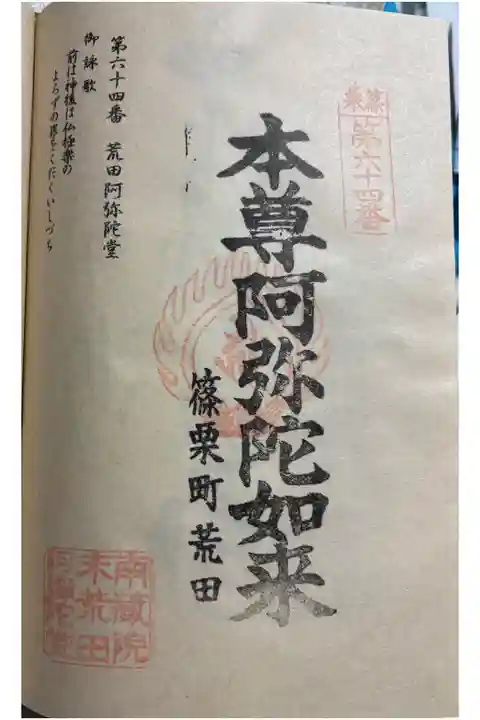 篠栗
第六十四番
本尊阿弥陀如来
篠栗町荒田
第六十四番 荒田阿弥陀堂
御詠歌
前は神後は仏極楽の
よろずの罪をくだくいしづち
南蔵院
末荒田
阿弥陀堂